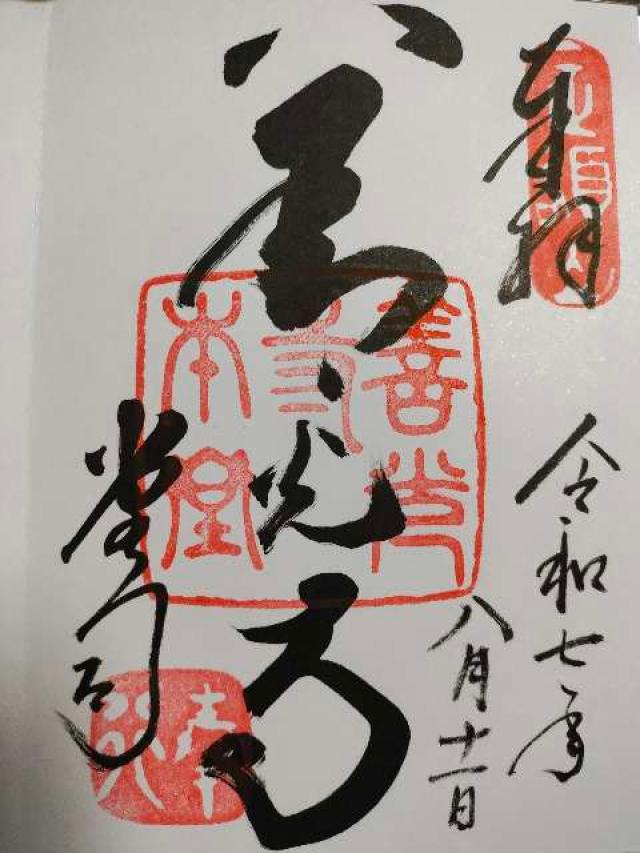 奉拝
令和七年
八月十一日
善光寺
堂司
善光
寺
本堂